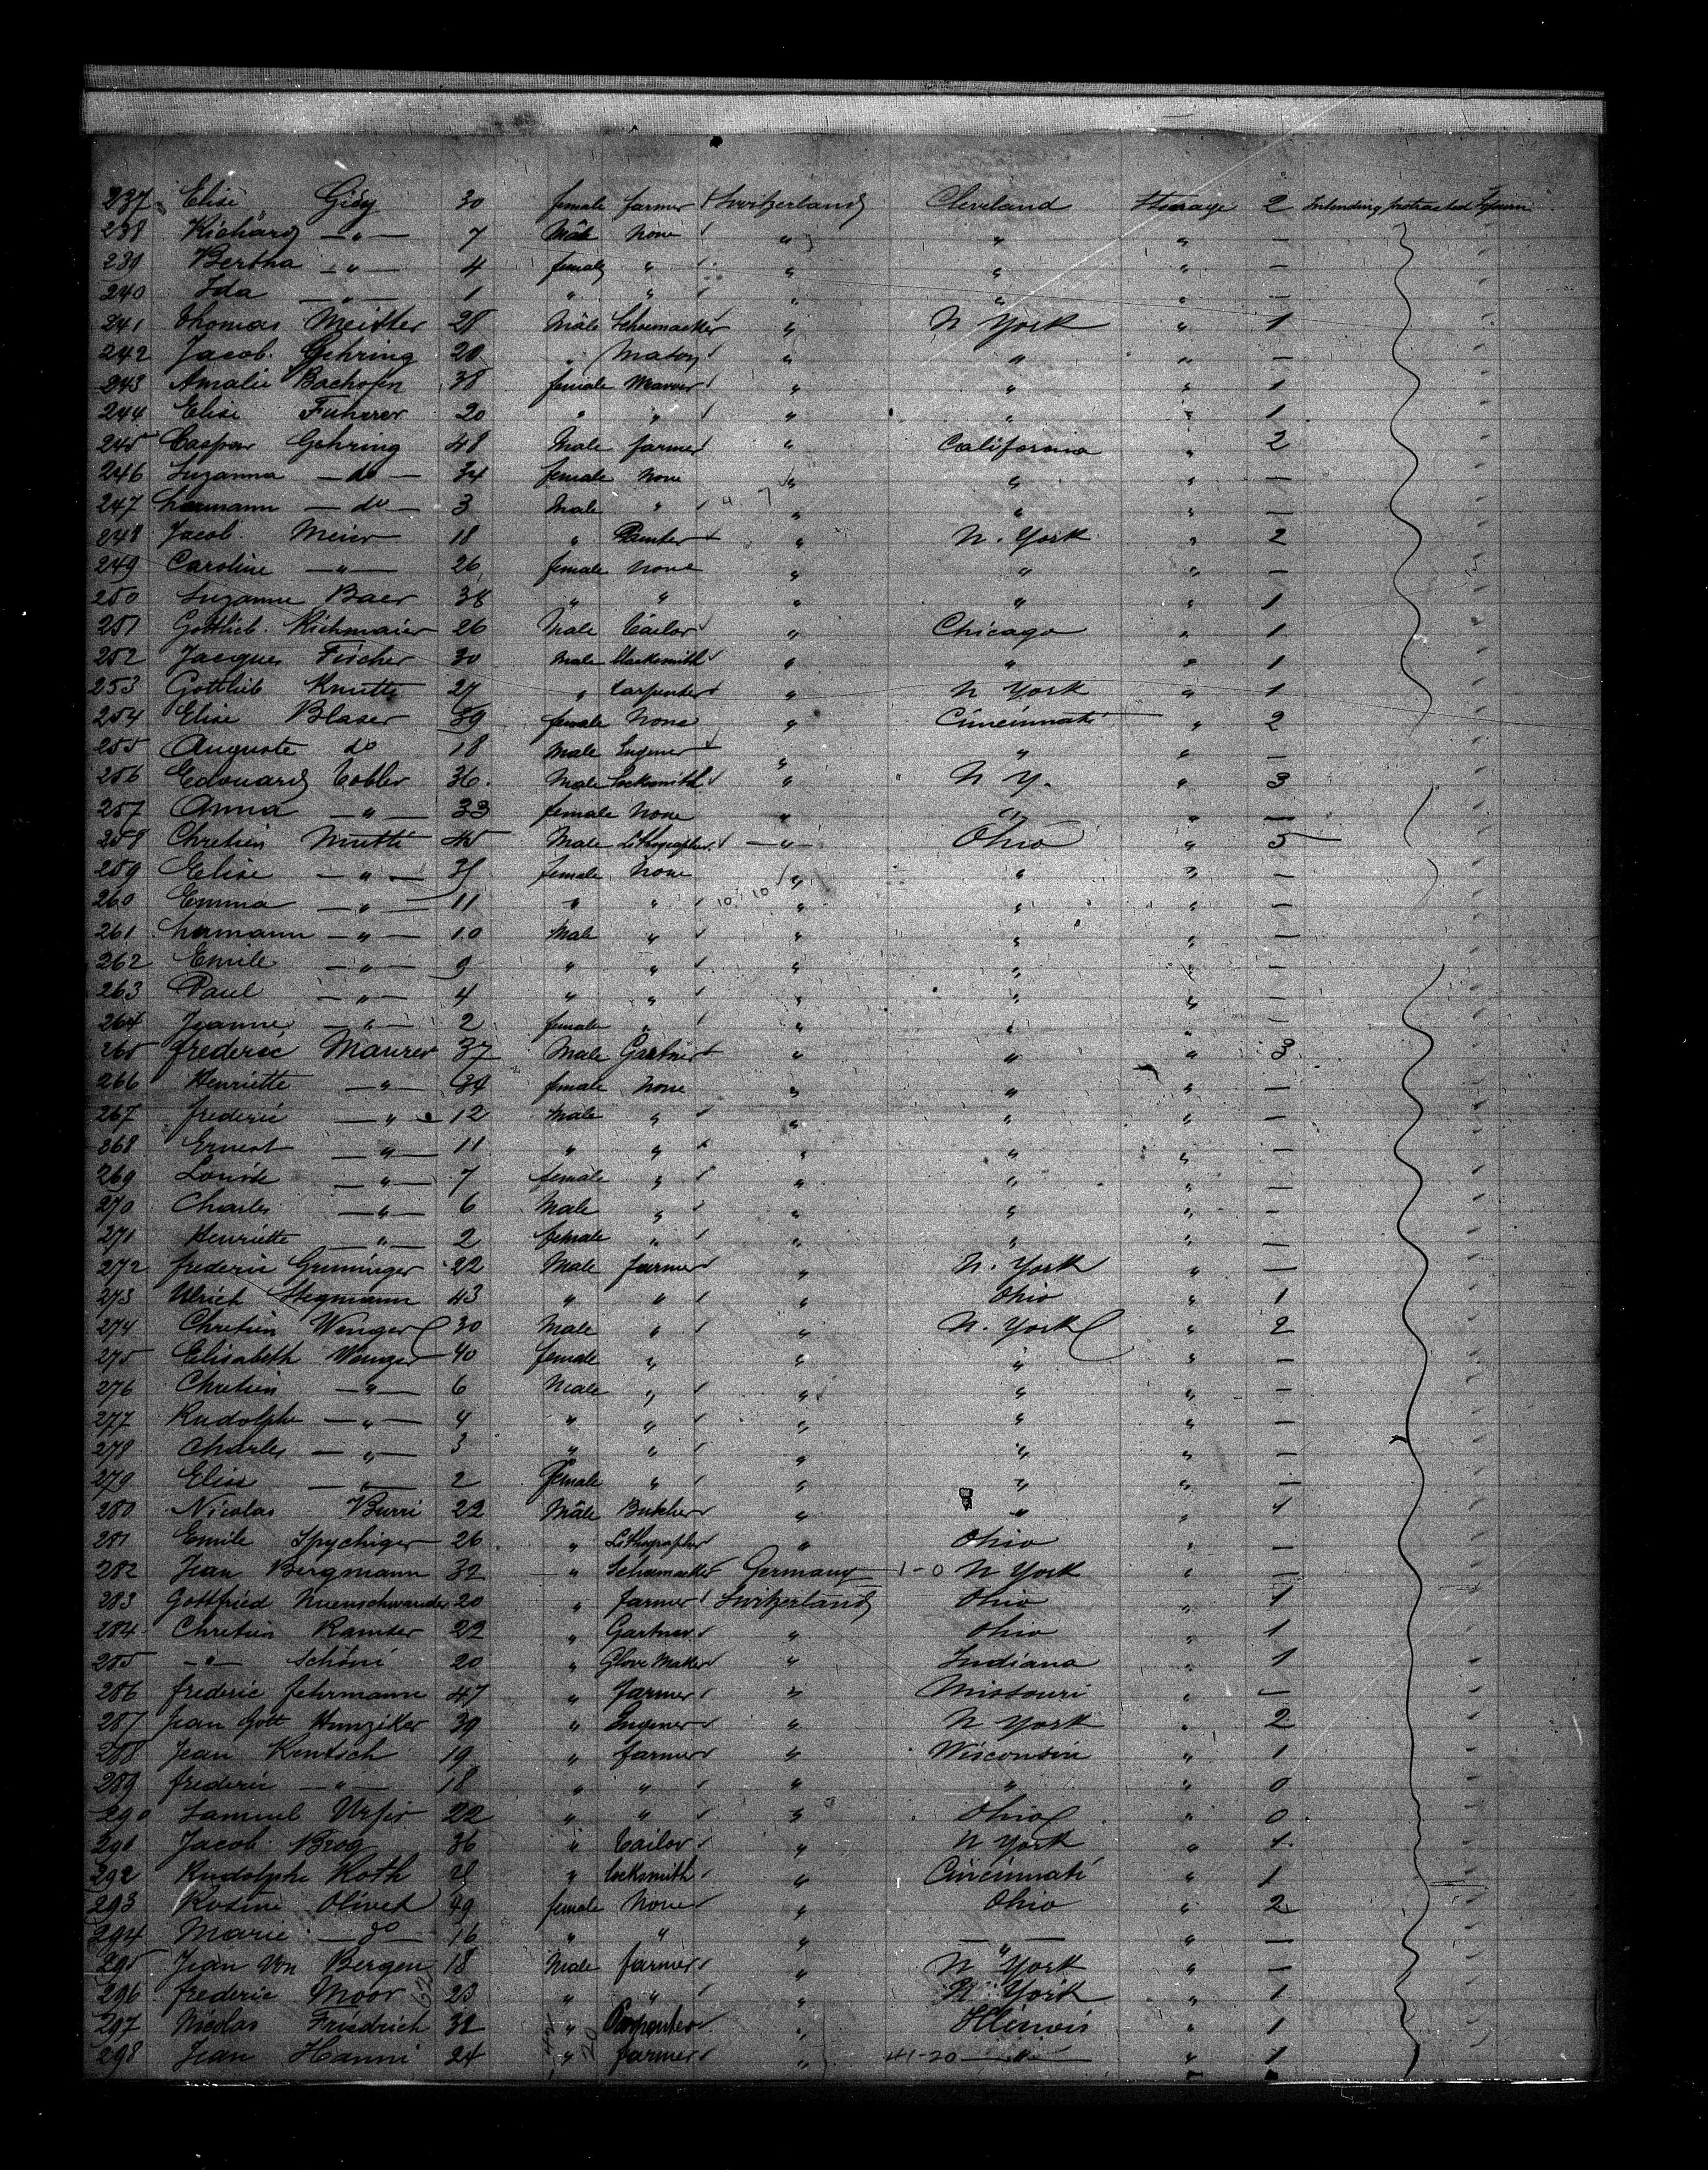 237 Elise Gisy 30 female farmer Switzerland Cleveland Steerage 2 Intending protracted Sojourn
238 Richard —"— 7 Mâle None " " " —
239 Bertha —"— 4 female " " " " —
240 Ida —"— 1 " " " " " —
241 Thomas Meister 28 Mâle Schoemacker " N York " 1
242 Jacob Gehring 20 " Mason " " " —
243 Amalie Bachofen 38 female " " " 1
244 Elise Fuhrer 20 " " " " " 1
245 Caspar Gehring 48 Male farmer " California " 2
246 Suzanna — do — 34 female None " " " —
247 hermann — do — 3 Male " " " " —
248 Jacob Meier 18 " Painter " N. York " 2
249 Caroline —"— 26 female None " " " —
250 Suzanne Baer 38 " " " " " 1
251 Gottlieb Richmaier 26 Male Tailor " Chicago " 1
252 Jacques Fischer 30 Male blacksmith " " " 1
253 Gottlieb Knutti 27 " Carpenter " N York " 1
254 Elise Blaser 39 female None " Cincinnati " 2
255 Auguste do 18 Male Engener " " " —
256 Edouard Tobler 36 Male Locksmith " N Y. " 3
257 Anna —"— 33 female None " " " —
258 Chretien Mutti 45 Male Lithographer —"— Ohio " 5
259 Elise —"— 38 female None " " " —
260 Emma —"— 11 " " 10 10 " " " —
261 hermann —"— 10 Male " " " " —
262 Emile —"— 9 " " " " " —
263 Paul —"— 4 " " " " " —
264 Jeanne —"— 2 female " " " " —
265 frederic Maurer 37 Male Gartner " " " 3
266 Henriette —"— 34 female None " " " —
267 frederic —"— 12 Male " " " " —
268 Ernest —"— 11 " " " " " —
269 Louise —"— 7 female " " " " —
270 Charles —"— 6 Male " " " " —
271 Henriette —"— 2 female " " " " —
272 frederic Gruninger 22 Male farmer " N. York " —
273 Ulrich Stegmann 43 " " " Ohio " 1
274 Chretien Wenger 30 Male " " N. York " 2
275 Elisabeth Wenger 40 female " " " " —
276 Chretien —"— 6 Male " " " " —
277 Rudolphe —"— 4 " " " " " —
278 Charles —"— 3 " " " " " —
279 Elise —"— 2 female " " " " —
280 Nicolas Burri 22 Mâle Butcher " " " 1
281 Emile Spychiger 26 " Lithographer " Ohio " —
282 Jean Bergmann 32 " Schumacker Germany 1-0 N York " —
283 Gottfried Nuenschwander 20 " farmer Switzerland Ohio " 1
284 Chretien Ramser 22 " Gartner " Ohio " 1
285 —"— Schöni 20 " Glove Maker " Indiana " 1
286 frederic fehrmann 47 " farmer " Missouri " —
287 Jean Gott Hunziker 39 " Engener " N York " 2
288 Jean Rentsch 19 " farmer " Wisconsin " 1
289 frederic —"— 18 " " " " " 0
290 Samuel Urfer 22 " " " Ohio " 0
291 Jacob Brog 36 " Tailor " N York " 1
292 Rudolphe Roth 21 " Locksmith " Cincinnati " 1
293 Rosine Olivet 49 female None " Ohio " 2
294 Marie — do 16 " " " —"— " —
295 Jean Von Bergen 18 Male farmer " N York " —
296 frederic Moor 23 " " " N York " 1
297 Nicolas Friedrich 32 " Carpenter " Illinois " 1
298 Jean Hanni 24 " farmer " 41-20 —"— " 1